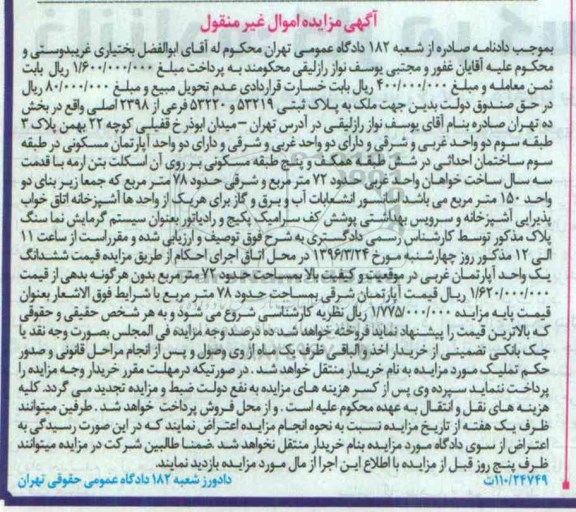 آگهی مزایده اموال غیر منقول
بموجب دادنامه صادره از شعبه ۱۸۲ دادگاه عمومی تهران محکوم له آقای ابوالفضل بختیاری غریبدوستی و
محکوم علیه آقایان غفور و مجتبی یوسف نواز رازلیقی محکومند به پرداخت مبلغ ۱/۶۰۰/۰۰۰/۰۰۰ ریال بابت
ثمن معامله و مبلغ ۴۰۰/۰۰۰/۰۰۰ ریال بابت خسارت قراردادی عدم تحویل مبیع و مبلغ ۸۰/۰۰۰/۰۰۰ ریال
در حق صندوق دولت بدین جهت ملک به پلاک ثبتی ۵۳۲۱۹ و ۵۳۲۲۰ فرعی از ۲۳۹۸ اصلی واقع در بخش
ده تهران صادره بنام آقای یوسف نواز رازلیقی در آدرس تهران – میدان ابوذر خ قفیلی کوچه ۲۲ بهمن پلاک ۳
طبقه سوم دو واحد غربی و شرقی و دارای دو واحد غربی و شرقی و دارای دو واحد آپارتمان مسکونی در طبقه
سوم ساختمان احداثی در شش طبقه همکف و پنج طبقه مسکونی بر روی آن اسکلت بتن ارمه با قدمت
سه سال ساخت خواهان واحد غربی حدود ۷۲ متر مربع و شرقی حدود ۷۸ متر مربع که جمعا زیر بنای دو
واحد ۱۵۰ متر مربع می باشد آسانسور انشعابات آب و برق و گاز برای هریک از واحد ها آشپزخانه اتاق خواب
پذیرایی آشپزخانه و سرویس بهداشتی پوشش کف سرامیک پکیج و رادیاتور بعنوان سیستم گرمایش نما سنگ
پلاک مذکور توسط کارشناس رسمی دادگستری به شرح فوق توصیف و ارزیابی شده و مقرراست از ساعت ۱۱
الی ۱۲ مذکور روز چهارشنبه مورخ ۱۳۹۶/۳/۲۴ در محل اتاق اجرای احکام از طریق مزایده قیمت ششدانگ
یک واحد آپارتمان غربی در موقعیت و کیفیت بالا بمساحت حدود ۷۲ متر مربع بدون هرگونه بدهی از قیمت
۱/۶۲۰/۰۰۰/۰۰۰ ریال قیمت آپارتمان شرقی بمساحت حدود ۷۸ متر مربع با شرایط فوق الاشعار بعنوان
قیمت پایه مزایده ۱/۷۷۵/۰۰۰/۰۰۰ ریال نظریه کارشناسی شروع می شود و به هر شخص حقیقی و حقوقی
که بالاترین قیمت را پیشنهاد نماید فروخته خواهد شد ده درصد وجه مزایده فی المجلس بصورت وجه نقد یا
چک بانکی تضمینی از خریدار اخذ والباقی ظرف یک ماه از وی وصول و پس از انجام مراحل قانونی و صدور
حکم تملیک مورد مزایده به نام خریدار منتقل خواهد شد . در صورتیکه درمهلت مقرر خریدار وجه مزایده را
پرداخت ننماید سپرده وی پس از کسر هزینه های مزایده به نفع دولت ضبط و مزایده تجدید می گردد. کلیه
هزینه های نقل و انتقال به عهده محکوم علیه است . و از محل فروش پرداخت خواهد شد . طرفین میتوانند
ظرف یک هفته از تاریخ مزایده نسبت به نحوه انجام مزایده اعتراض نمایند که در این صورت رسیدگی به
اعتراض از سوی دادگاه مورد مزایده بنام خریدار منتقل نخواهد شد .ضمنا طالبین شرکت در مزایده میتوانند
ظرف پنج روز قبل از مزایده با اطلاع این اجرا از مال مورد مزایده بازدید نمایند.
۱۱۰/۲۴۷۴۹ت دادورز شعبه ۱۸۲ دادگاه عمومی حقوقی تهران